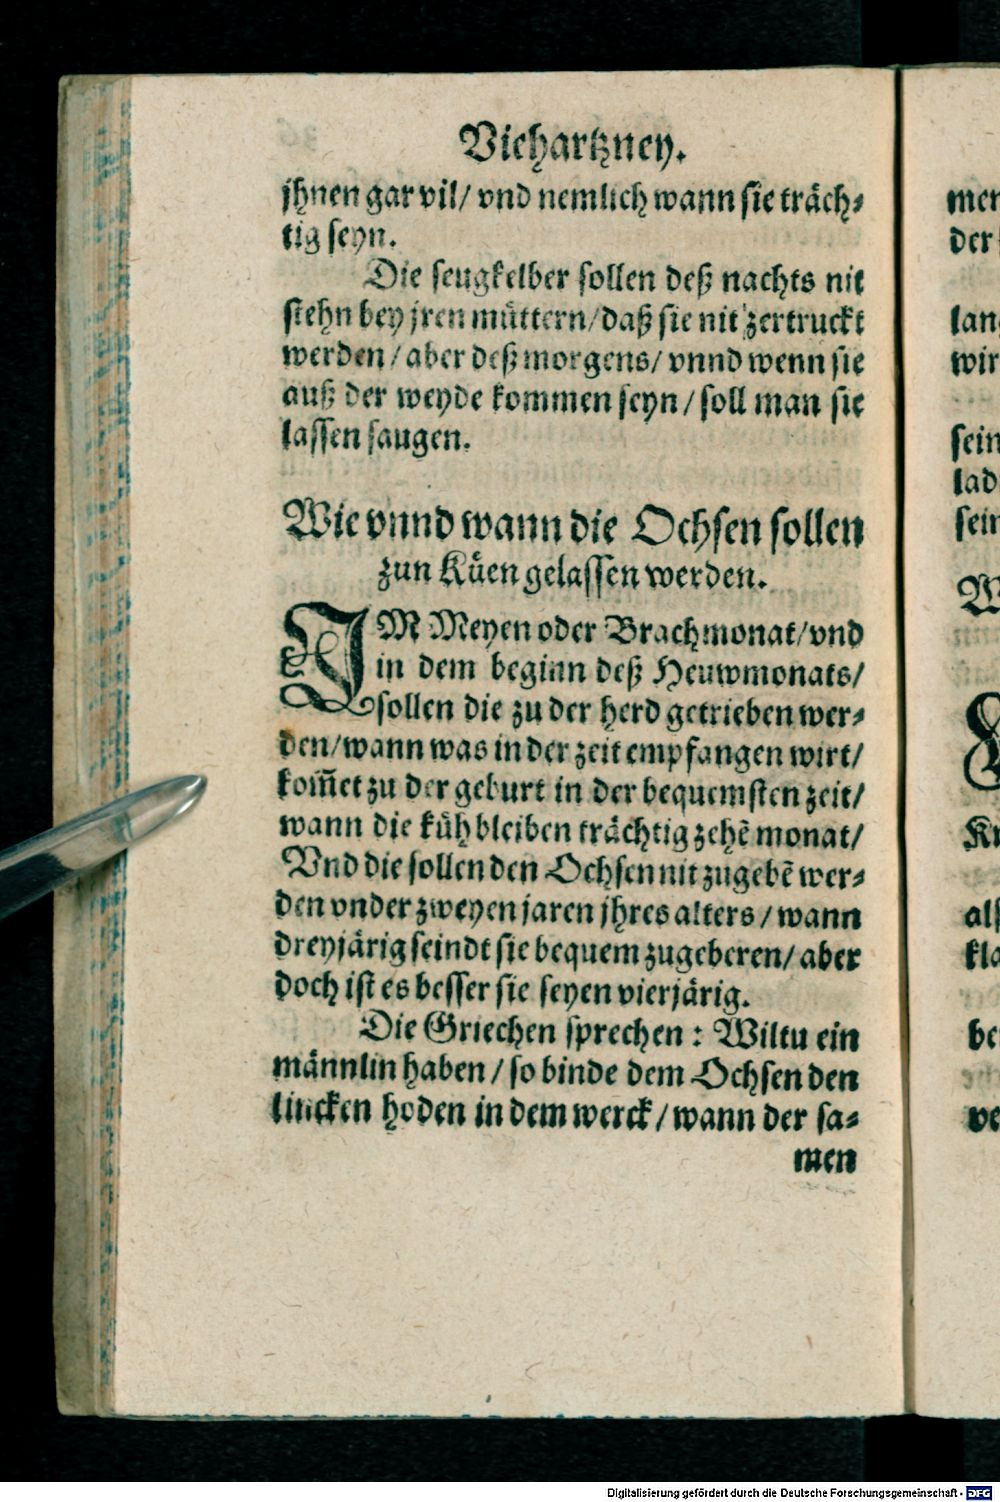 Viehartzney.
jhnen gar vil/ vnd nemlich wann sie träch⸗
tig seyn.
Die seugkelber sollen deß nachts nit
stehn bey jren müttern/daß sie nit zertruckt
werden/aber deß morgens/ vnnd wenn sie
auß der weyde kommen seyn/soll man sie
lassen saugen.
Wie vnnd wann die Ochsen sollen
zun Küen gelassen werden.
IM Meyen oder Brachmonat/vnd
in dem beginn deß Heuwmonats/
sollen die zu der herd getrieben wer⸗
den/wann was in der zeit empfangen wirt/
kom̃et zu der geburt in der bequemsten zeit/
wann die küh bleiben trächtig zehẽ monat/
Vnd die sollen den Ochsen nit zugebẽ wer⸗
den vnder zweyen jaren jhres alters/wann
dreyjärig seindt sie bequem zugeberen/ aber
doch ist es besser sie seyen vierjärig.
Die Griechen sprechen: Wiltu ein
männlin haben/so binde dem Ochsen den
lincken hoden in dem werck/wann der sa⸗
men
mer
der
lan
wir
sein
lad
sein
W
Kü
als
kla
be
ve
Digitalisierung gefördert durch die Deutsche Forschungsgemeinschaft - DFG